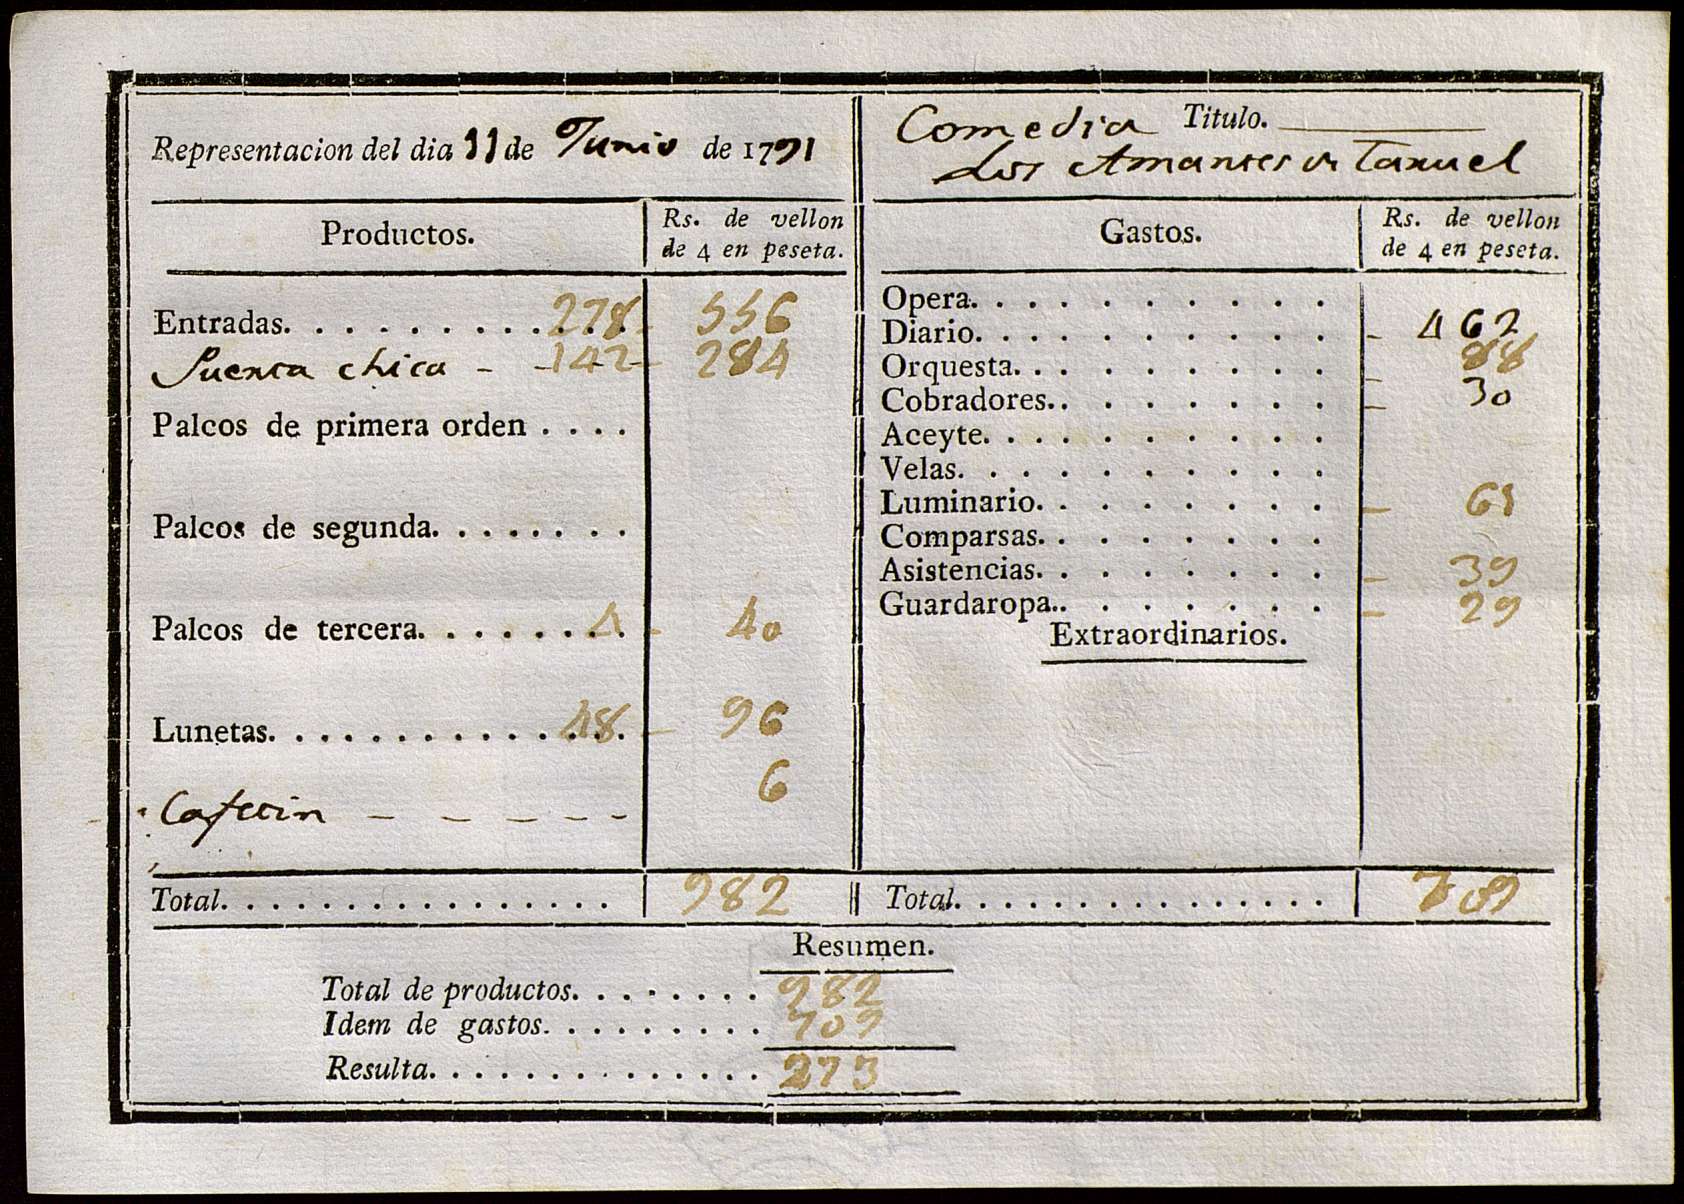 Representacion del dia 11 de Junio de 1791
Productos.
Rs. de vellon
de 4 en peseta.
Entradas. . . . . . . . . . . . . 278 - 556
Puerta chica - - 142 - 284
Palcos de primera orden . . . .
Palcos de segunda. . . . . . . .
Palcos de tercera. . . . . . . . 4 - 40
Lunetas. . . . . . . . . . . . . . 48 - 96
6
Cafetin - - - - - -
Total. . . . . . . . . . . . . . . . 982
Comedia Titulo.
Los Amantes de Taruel
Gastos.
Rs. de vellon
de 4 en peseta.
Opera. . . . . . . . . . .
Diario. . . . . . . . . . . - 462
Orquesta. . . . . . . . . - 88
Cobradores. . . . . . . . - 30
Aceyte. . . . . . . . . . .
Velas. . . . . . . . . . .
Luminario. . . . . . . . - 61
Comparsas. . . . . . . .
Asistencias. . . . . . . . - 39
Guardaropa. . . . . . . . - 29
Extraordinarios.
Total. . . . . . . . . . . . . . . 709
Resumen.
Total de productos. . . . . . . . 982
Idem de gastos. . . . . . . . . 709
Resulta. . . . . . . . . . . . . . 273